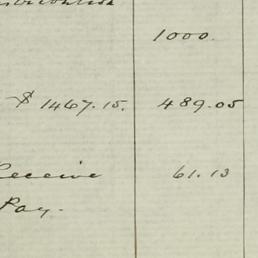 1000.
$1467.15. 489.05
Receive 61.13
Pay.